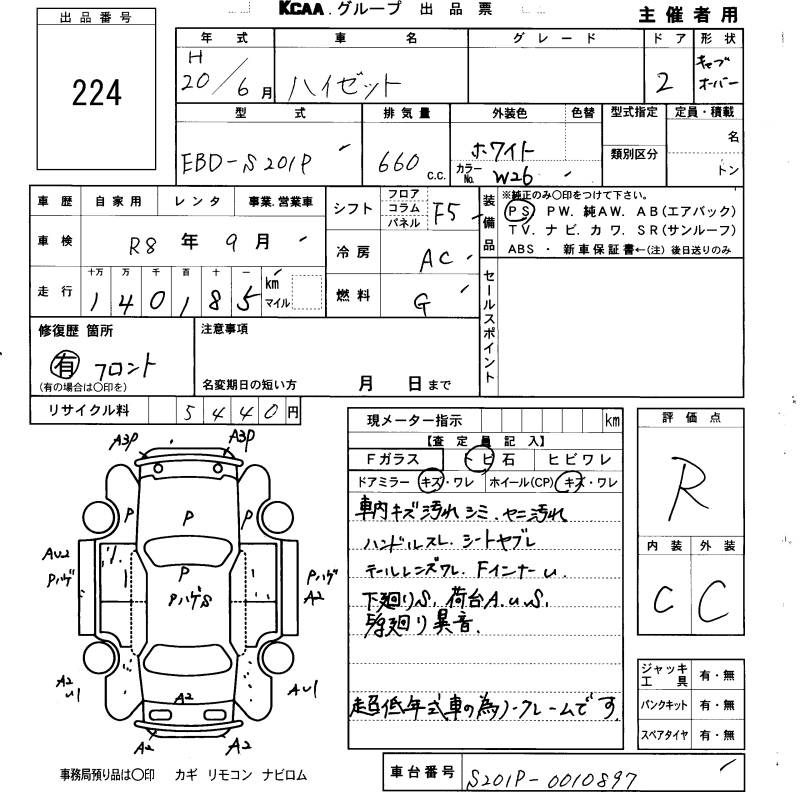 KCAA.グループ 出品票
主催者用
出品番号
224
年式 車名 グレード ドア 形状
H
20/6月 ハイゼット 2 キャブオーバー
型式 排気量 外装色 色替 型式指定 定員・積載
EBD-S201P 660 c.c. ホワイト 名
カラーNo. W26 類別区分 トン
車歴 自家用 レンタ 事業.営業車
車検 R8年9月
走行 十万 万 千 百 十 一
1 4 0 1 8 5 km マイル
シフト フロア コラム パネル F5
冷房 AC
燃料 G
装備品
※純正のみ〇印をつけて下さい。
PS PW. 純AW. AB(エアバック)
TV. ナビ. カワ. SR(サンルーフ)
ABS ・ 新車保証書←(注) 後日送りのみ
セールスポイント
修復歴 箇所
有 フロント
(有の場合は〇印を)
注意事項
名変期日の短い方 月 日まで
リサイクル料 5440円
現メーター指示 km
【査定員記入】
Fガラス トビ石 ヒビワレ
ドアミラー キズ・ワレ ホイール(CP) キズ・ワレ
車内キズ汚れシミ.ヤニ汚れ
ハンドルスレ.シートヤブレ
テールレンズワレ.FインナーU.
下廻りS.荷台A.U.S.
駆廻り異音.
超低年式車の為ノークレームです
評価点
R
内装 外装
C C
ジャッキ工具 有・無
パンクキット 有・無
スペアタイヤ 有・無
A3P A3P
P P P
AU2 Pハゲ
P
PハゲS
Pハゲ A2
A2 U1
A2
AU1
A2 A2
事務局預り品は〇印 カギ リモコン ナビロム
車台番号 S201P-0010897